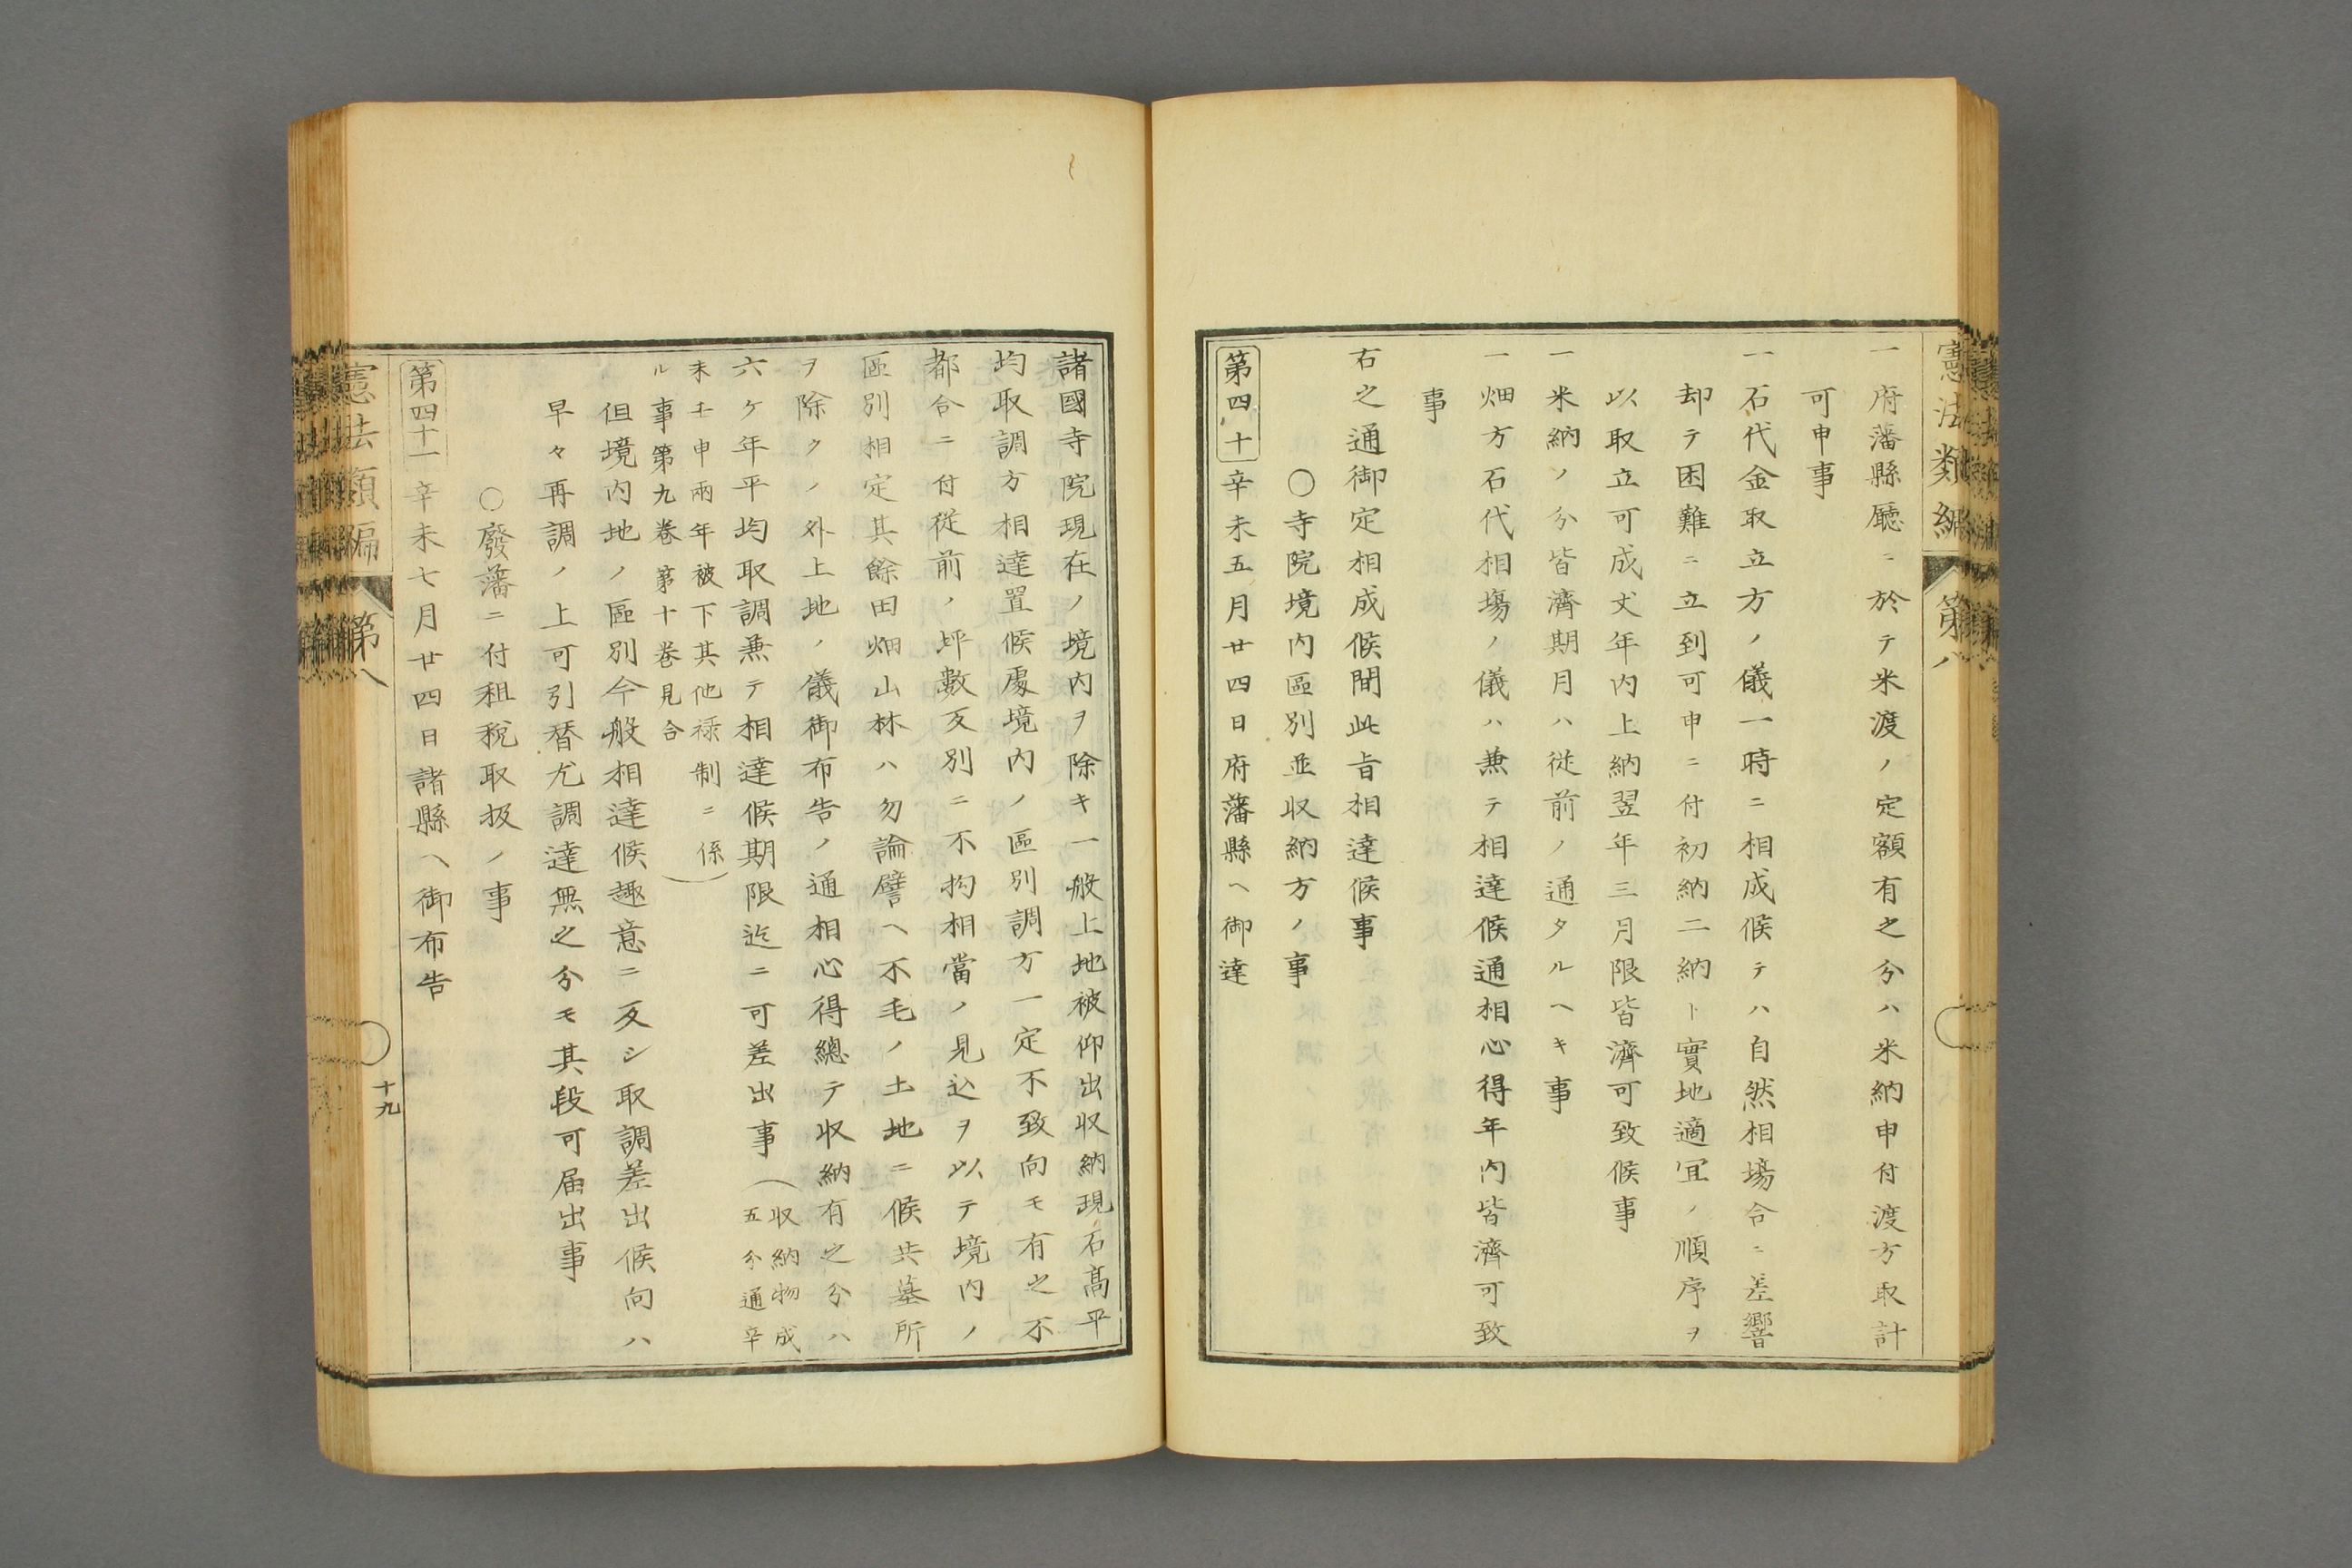 憲法類編 第八
一府藩縣廳ニ於テ米渡ノ定額有之分ハ米納申付渡方取計
可申事
一石代金取立方ノ儀一時ニ相成候テハ自然相場合ニ差響
却テ困難ニ立到可申ニ付初納二納ト實地適冝ノ順序ヲ
以取立可成丈年内上納翌年三月限皆濟可致候事
一米納ノ分皆濟期月ハ從前ノ通タルヘキ事
一畑方石代相場ノ儀ハ兼テ相達候通相心得年内皆濟可致
事
右之通御定相成候間此旨相達候事
〇寺院境内區別並収納方ノ事
第四十 辛未五月廿四日府藩縣ヘ御達
諸國寺院現在ノ境内ヲ除キ一般上地被仰出収納現石髙平
均取調方相達置候處境内ノ區別調方一定不致向モ有之不
都合ニ付從前ノ坪數反別ニ不拘相當ノ見込ヲ以テ境内ノ
區別相定其餘田畑山林ハ勿論譬ヘ不毛ノ土地ニ候共墓所
ヲ除クノ外上地ノ儀御布告ノ通相心得總テ収納有之分ハ
六ケ年平均取調兼テ相達候期限迄ニ可差出事（収納物成
五分通辛
未壬申兩年被下其他禄制ニ係
ル事第九巻第十巻見合）
但境内地ノ區別今般相達候趣意ニ反シ取調差出候向ハ
早々再調ノ上可引替尤調達無之分モ其段可届出事
〇廢藩ニ付租税取扱ノ事
第四十一 辛未七月廿四日諸縣ヘ御布告
憲法類編 第八 十九